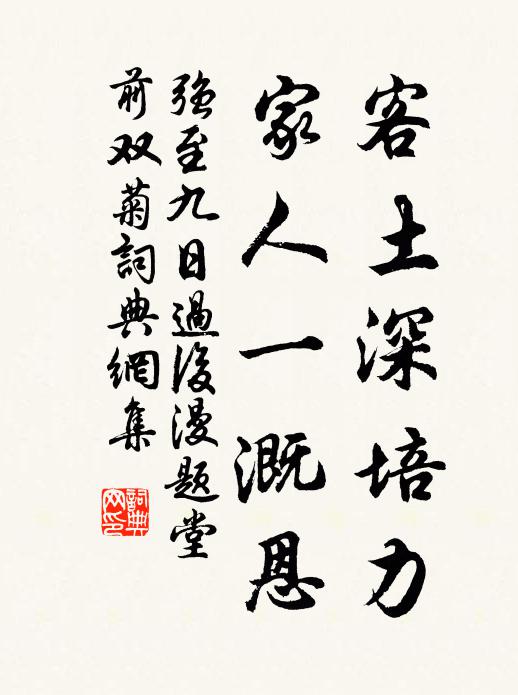 客土深培力
家人一溉恩
强至九日過後漫题堂
前双菊詞典網集
詞典网印